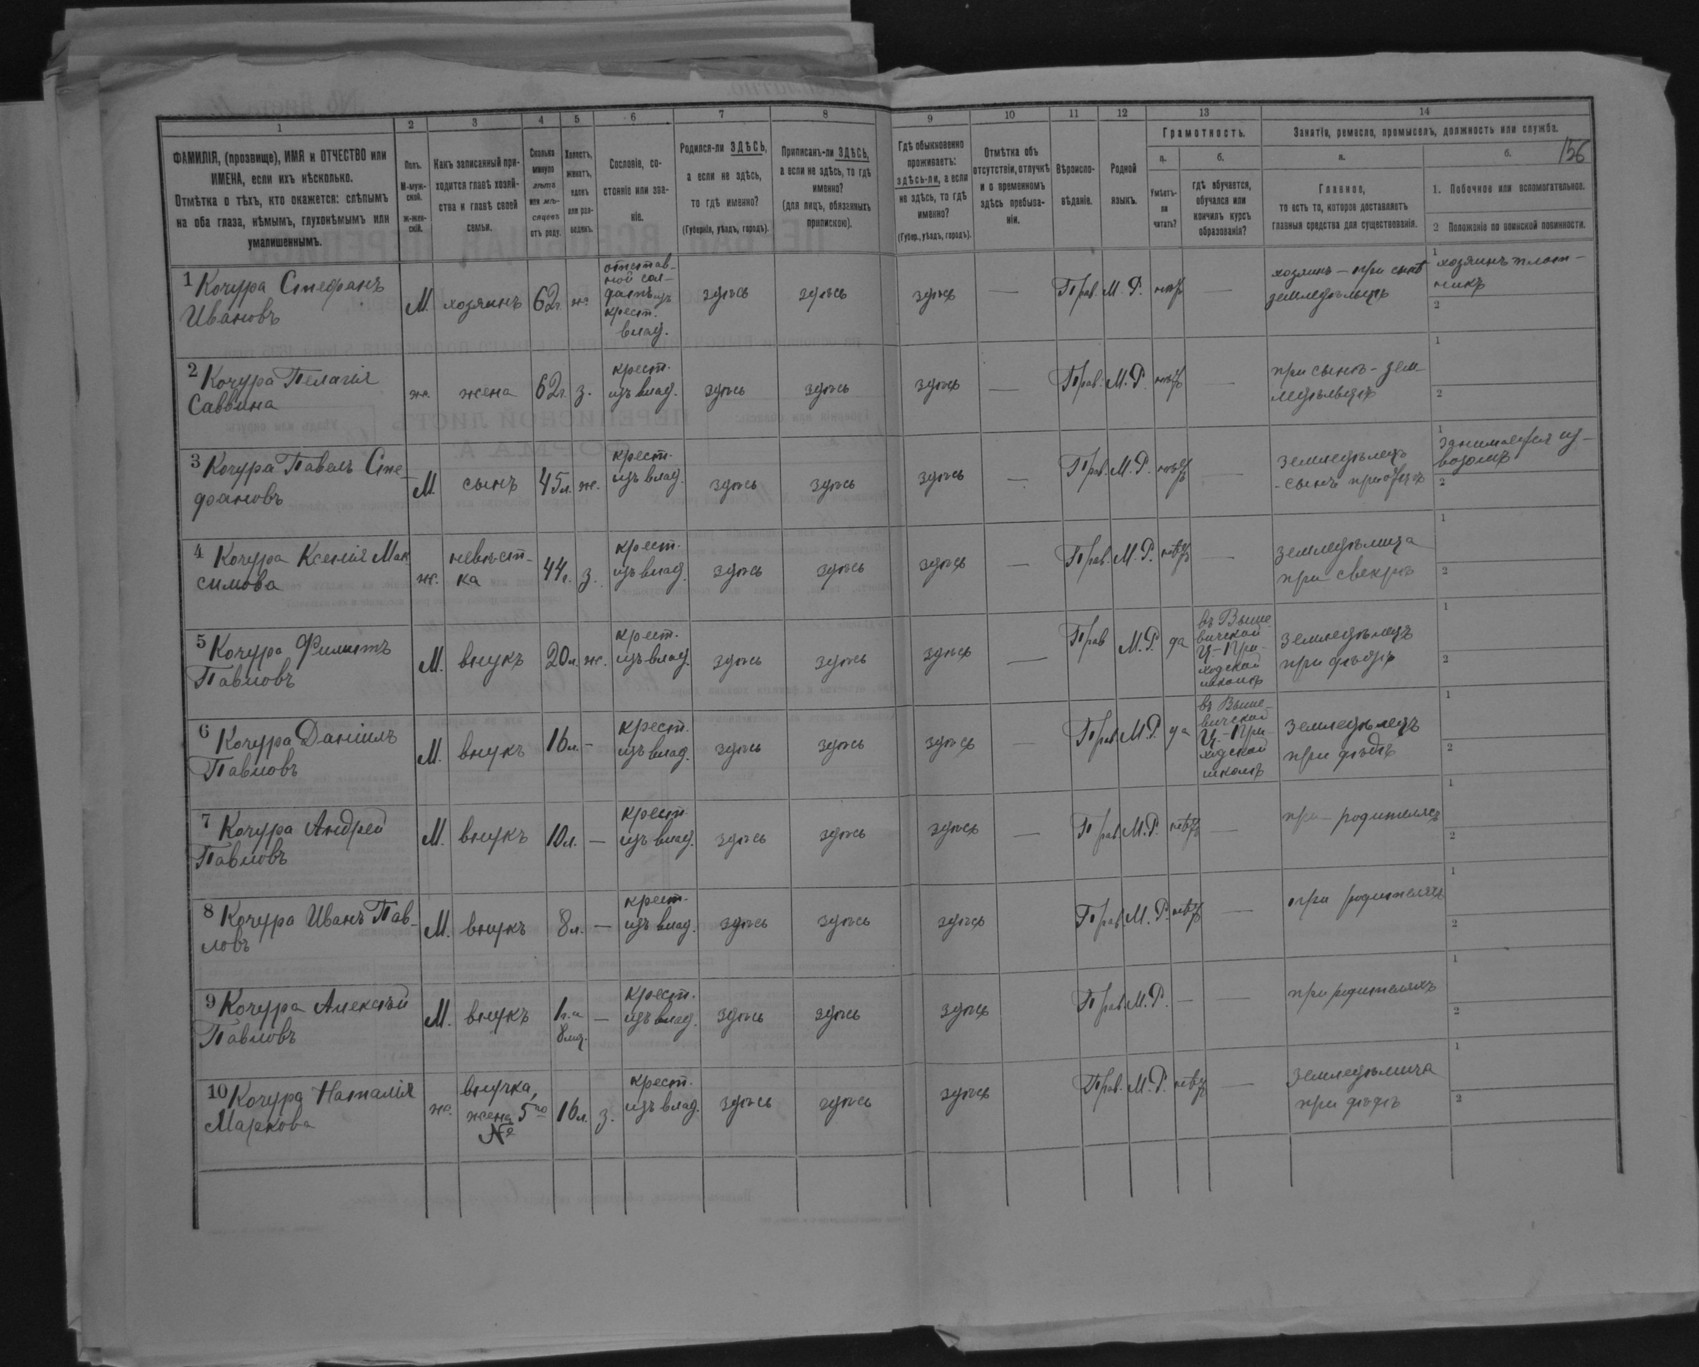 156
1 2 3 4 5 6 7 8 9 10 11 12 13 14
ФАМИЛІЯ, (прозвище), ИМЯ и ОТЧЕСТВО или
ИМЕНА, если ихъ нѣсколько.
Отмѣтка о тѣхъ, кто окажется: слѣпымъ
на оба глаза, нѣмымъ, глухонѣмымъ или
умалишеннымъ.
Полъ.
М-муж-
ской.
Ж-жен-
скій.
Какъ записанный при-
ходится главѣ хозяй-
ства и главѣ своей
семьи.
Сколько
минуло
лѣтъ
или мѣ-
сяцевъ
отъ роду.
Холостъ,
женатъ,
вдовъ
или раз-
веденъ.
Сословіе, со-
стояніе или зва-
ніе.
Родился-ли ЗДѢСЬ,
а если не здѣсь,
то гдѣ именно?
(Губернія, уѣздъ, городъ).
Приписанъ-ли ЗДѢСЬ,
а если не здѣсь, то гдѣ
именно?
(для лицъ, обязанныхъ
припискою).
Гдѣ обыкновенно
проживаетъ:
здѣсь-ли, а если
не здѣсь, то гдѣ
именно?
(Губер., уѣздъ, городъ).
Отмѣтка объ
отсутствіи, отлучкѣ
и о временномъ
здѣсь пребыва-
ніи.
Вѣроиспо-
вѣданіе.
Родной
языкъ.
Грамотность.
а.
Умѣетъ-
ли
читать?
б.
гдѣ обучается,
обучался или
кончилъ курсъ
образованія?
Занятія, ремесло, промыселъ, должность или служба.
а.
Главное,
то есть то, которое доставляетъ
главныя средства для существованія.
б.
1. Побочное или вспомогательное.
2 Положеніе по воинской повинности.
1 Кочура Стефанъ
Ивановъ
М. хозяинъ 62г. ж.
отстав-
ной сол-
датъ изъ
крест.
влад.
здѣсь здѣсь здѣсь — Прав. М.Р. нѣтъ —
хозяинъ – при сынѣ
земледѣльцѣ
1 хозяинъ плот-
никъ
2
2 Кочура Пелагія
Саввина
ж. жена 62г. з.
крест.
изъ влад.
здѣсь здѣсь здѣсь — Прав. М.Р. нѣтъ —
при сынѣ – зем
ледѣльцѣ
1
2
3 Кочура Павелъ Сте-
фановъ
М. сынъ 45л. ж.
крест.
изъ влад.
здѣсь здѣсь здѣсь — Прав. М.Р. нѣтъ —
земледѣлецъ
- сынъ при отцѣ
1 занимается из-
возомъ
2
4 Кочура Ксенія Мак
симова
ж.
невѣст-
ка
44г. з.
крест.
изъ влад.
здѣсь здѣсь здѣсь — Прав. М.Р. нѣтъ —
земледѣлица
при свекрѣ
1
2
5 Кочура Филипъ
Павловъ
М. внукъ 20л. ж.
крест.
изъ влад.
здѣсь здѣсь здѣсь — Прав М.Р. да
въ Выше
вичской
Ц.-При-
ходской
школѣ
земледѣлецъ
при дѣдѣ
1
2
6 Кочура Даніилъ
Павловъ
М. внукъ 16л. —
крест.
изъ влад.
здѣсь здѣсь здѣсь — Прав М.Р. да
въ Выше-
вичской
Ц.-При
ходской
школѣ
земледѣлецъ
при дѣдѣ
1
2
7 Кочура Андрей
Павловъ
М. внукъ 10л. —
крест.
изъ влад.
здѣсь здѣсь здѣсь — Прав М.Р. нѣтъ —
при родителяхъ
1
2
8 Кочура Иванъ Пав-
ловъ
М. внукъ 8л. —
крест.
изъ влад.
здѣсь здѣсь здѣсь Прав М.Р. нѣтъ —
при родителяхъ
1
2
9 Кочура Алексѣй
Павловъ
М. внукъ
1г. и
8мц.
—
крест.
изъ влад.
здѣсь здѣсь здѣсь Прав М.Р. — —
при родителяхъ
1
2
10 Кочура Наталія
Маркова
ж.
внучка,
жена 5го
№
16л. з.
крест.
изъ влад.
здѣсь здѣсь здѣсь Прав. М.Р. нѣтъ —
земледѣлица
при дѣдѣ
1
2